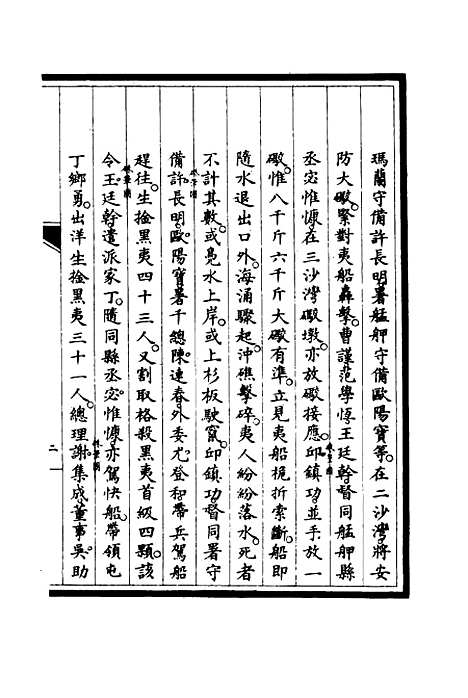 瑪蘭守備許長明署艋舺守備歐陽寶等在二沙灣將安
防大礮緊對夷船轟擊曹謹范學恒王廷幹督同艋舺縣
丞宓惟慷在三沙灣礮墩亦放礮接應邱鎮功並手放一
礮惟八千斤六千斤大礮有準立見夷船桅折索斷船即
隨水退出口外海涌驟起沖礁擊碎夷人紛紛落水死者
不計其數或鳧水上岸或上杉板駛竄邱鎮功督同署守
備許長明歐陽寶署千總陳連春外委尤登和帶兵駕船
趕往生擒黑夷四十三人又割取格殺黑夷首級四顆該
令王廷幹遣派家丁隨同縣丞宓惟慷亦駕快船帶領屯
丁鄉勇出洋生擒黑夷三十一人總理謝集成董事吳助